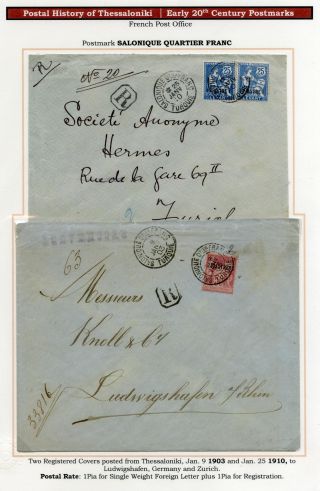 Postal History of Thessaloniki | Early 20th Century Postmarks
French Post Office
Postmark SALONIQUE QUARTIER FRANC
R
No 20
R
25
25
Société Anonyme
Hermes
Rue de la Gare 69 II
Zurich
63
R
Messieurs
Knoll & Cy
Ludwigshafen s/Rhin
33916
Two Registered Covers posted from Thessaloniki, Jan. 9 1903 and Jan. 25 1910, to
Ludwigshafen, Germany and Zurich.
Postal Rate: 1Pia for Single Weight Foreign Letter plus 1Pia for Registration.